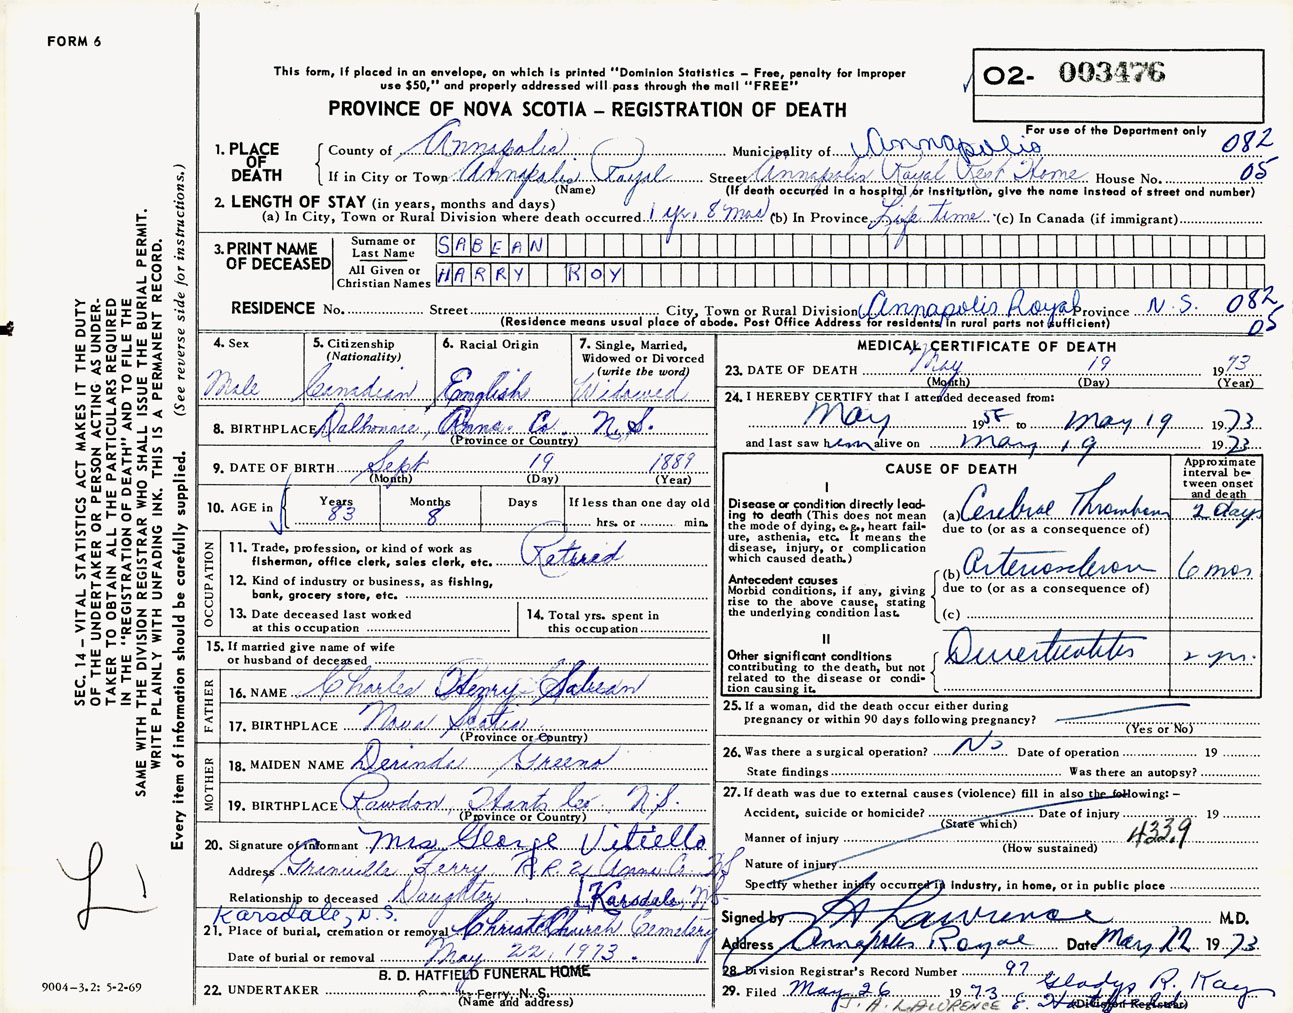 FORM 6
This form, if placed in an envelope, on which is printed "Dominion Statistics – Free, penalty for improper
use $50," and properly addressed will pass through the mail "FREE"
02- 003476
PROVINCE OF NOVA SCOTIA – REGISTRATION OF DEATH
For use of the Department only
1. PLACE OF DEATH
County of Annapolis Municipality of Annapolis 082
If in City or Town Annapolis Royal Street Annapolis Royal Rest Home House No. 05
(Name) (If death occurred in a hospital or institution, give the name instead of street and number)
2. LENGTH OF STAY (in years, months and days)
(a) In City, Town or Rural Division where death occurred 1 yr. 8 mos (b) In Province Life time (c) In Canada (if immigrant)
3. PRINT NAME OF DECEASED
Surname or Last Name SABEAN
All Given or Christian Names HARRY ROY
RESIDENCE No. Street City, Town or Rural Division Annapolis Royal Province N.S. 082
(Residence means usual place of abode. Post Office Address for residents in rural parts not sufficient) 05
4. Sex Male
5. Citizenship (Nationality) Canadian
6. Racial Origin English
7. Single, Married, Widowed or Divorced (write the word) Widowed
8. BIRTHPLACE Dalhousie, Anna. Co. N.S.
(Province or Country)
9. DATE OF BIRTH Sept 19 1889
(Month) (Day) (Year)
10. AGE in Years 83 Months 8 Days If less than one day old
hrs. or min.
OCCUPATION
11. Trade, profession, or kind of work as
fisherman, office clerk, sales clerk, etc. Retired
12. Kind of industry or business, as fishing,
bank, grocery store, etc.
13. Date deceased last worked
at this occupation
14. Total yrs. spent in
this occupation
15. If married give name of wife
or husband of deceased
FATHER
16. NAME Charles Henry Sabean
17. BIRTHPLACE Nova Scotia
(Province or Country)
MOTHER
18. MAIDEN NAME Derinda Greeno
19. BIRTHPLACE Rawdon, Hants Co. N.S.
(Province or Country)
20. Signature of informant Mrs George Vitiello
Address Granville Ferry R.R. 2 Anna. Co. N.S.
Relationship to deceased Daughter Karsdale, N.S.
Karsdale, N.S.
21. Place of burial, cremation or removal Christ Church Cemetery
Date of burial or removal May 22, 1973.
B. D. HATFIELD FUNERAL HOME
22. UNDERTAKER Ferry N. S.
(Name and address)
MEDICAL CERTIFICATE OF DEATH
23. DATE OF DEATH May 19 1973
(Month) (Day) (Year)
24. I HEREBY CERTIFY that I attended deceased from:
May 1958 to May 19 1973
and last saw him alive on May 19 1973
CAUSE OF DEATH
Approximate interval between onset and death
I
Disease or condition directly lead-
ing to death (This does not mean
the mode of dying, e.g., heart fail-
ure, asthenia, etc. It means the
disease, injury, or complication
which caused death.)
(a) Cerebral Thrombosis 2 days
due to (or as a consequence of)
Antecedent causes
Morbid conditions, if any, giving
rise to the above cause, stating
the underlying condition last.
(b) Arteriosclerosis 6 mos
due to (or as a consequence of)
(c)
II
Other significant conditions
contributing to the death, but not
related to the disease or condi-
tion causing it.
Diverticulitis 2 yrs.
25. If a woman, did the death occur either during
pregnancy or within 90 days following pregnancy?
(Yes or No)
26. Was there a surgical operation? No Date of operation 19
State findings Was there an autopsy?
27. If death was due to external causes (violence) fill in also the following: –
Accident, suicide or homicide? Date of injury 19
(State which)
Manner of injury 4339
(How sustained)
Nature of injury
Specify whether injury occurred in industry, in home, or in public place
Signed by Lawrence M.D.
Address Annapolis Royal Date May 22 1973
28. Division Registrar's Record Number 97
29. Filed May 26 1973 Gladys R. Kay
J. A. LAWRENCE
(Division Registrar)
SEC. 14 – VITAL STATISTICS ACT MAKES IT THE DUTY
OF THE UNDERTAKER OR PERSON ACTING AS UNDER-
TAKER TO OBTAIN ALL THE PARTICULARS REQUIRED
IN THE "REGISTRATION OF DEATH" AND TO FILE THE
SAME WITH THE DIVISION REGISTRAR WHO SHALL ISSUE THE BURIAL PERMIT.
WRITE PLAINLY WITH UNFADING INK. THIS IS A PERMANENT RECORD.
Every item of information should be carefully supplied. (See reverse side for instructions.)
9004-3.2: 5-2-69